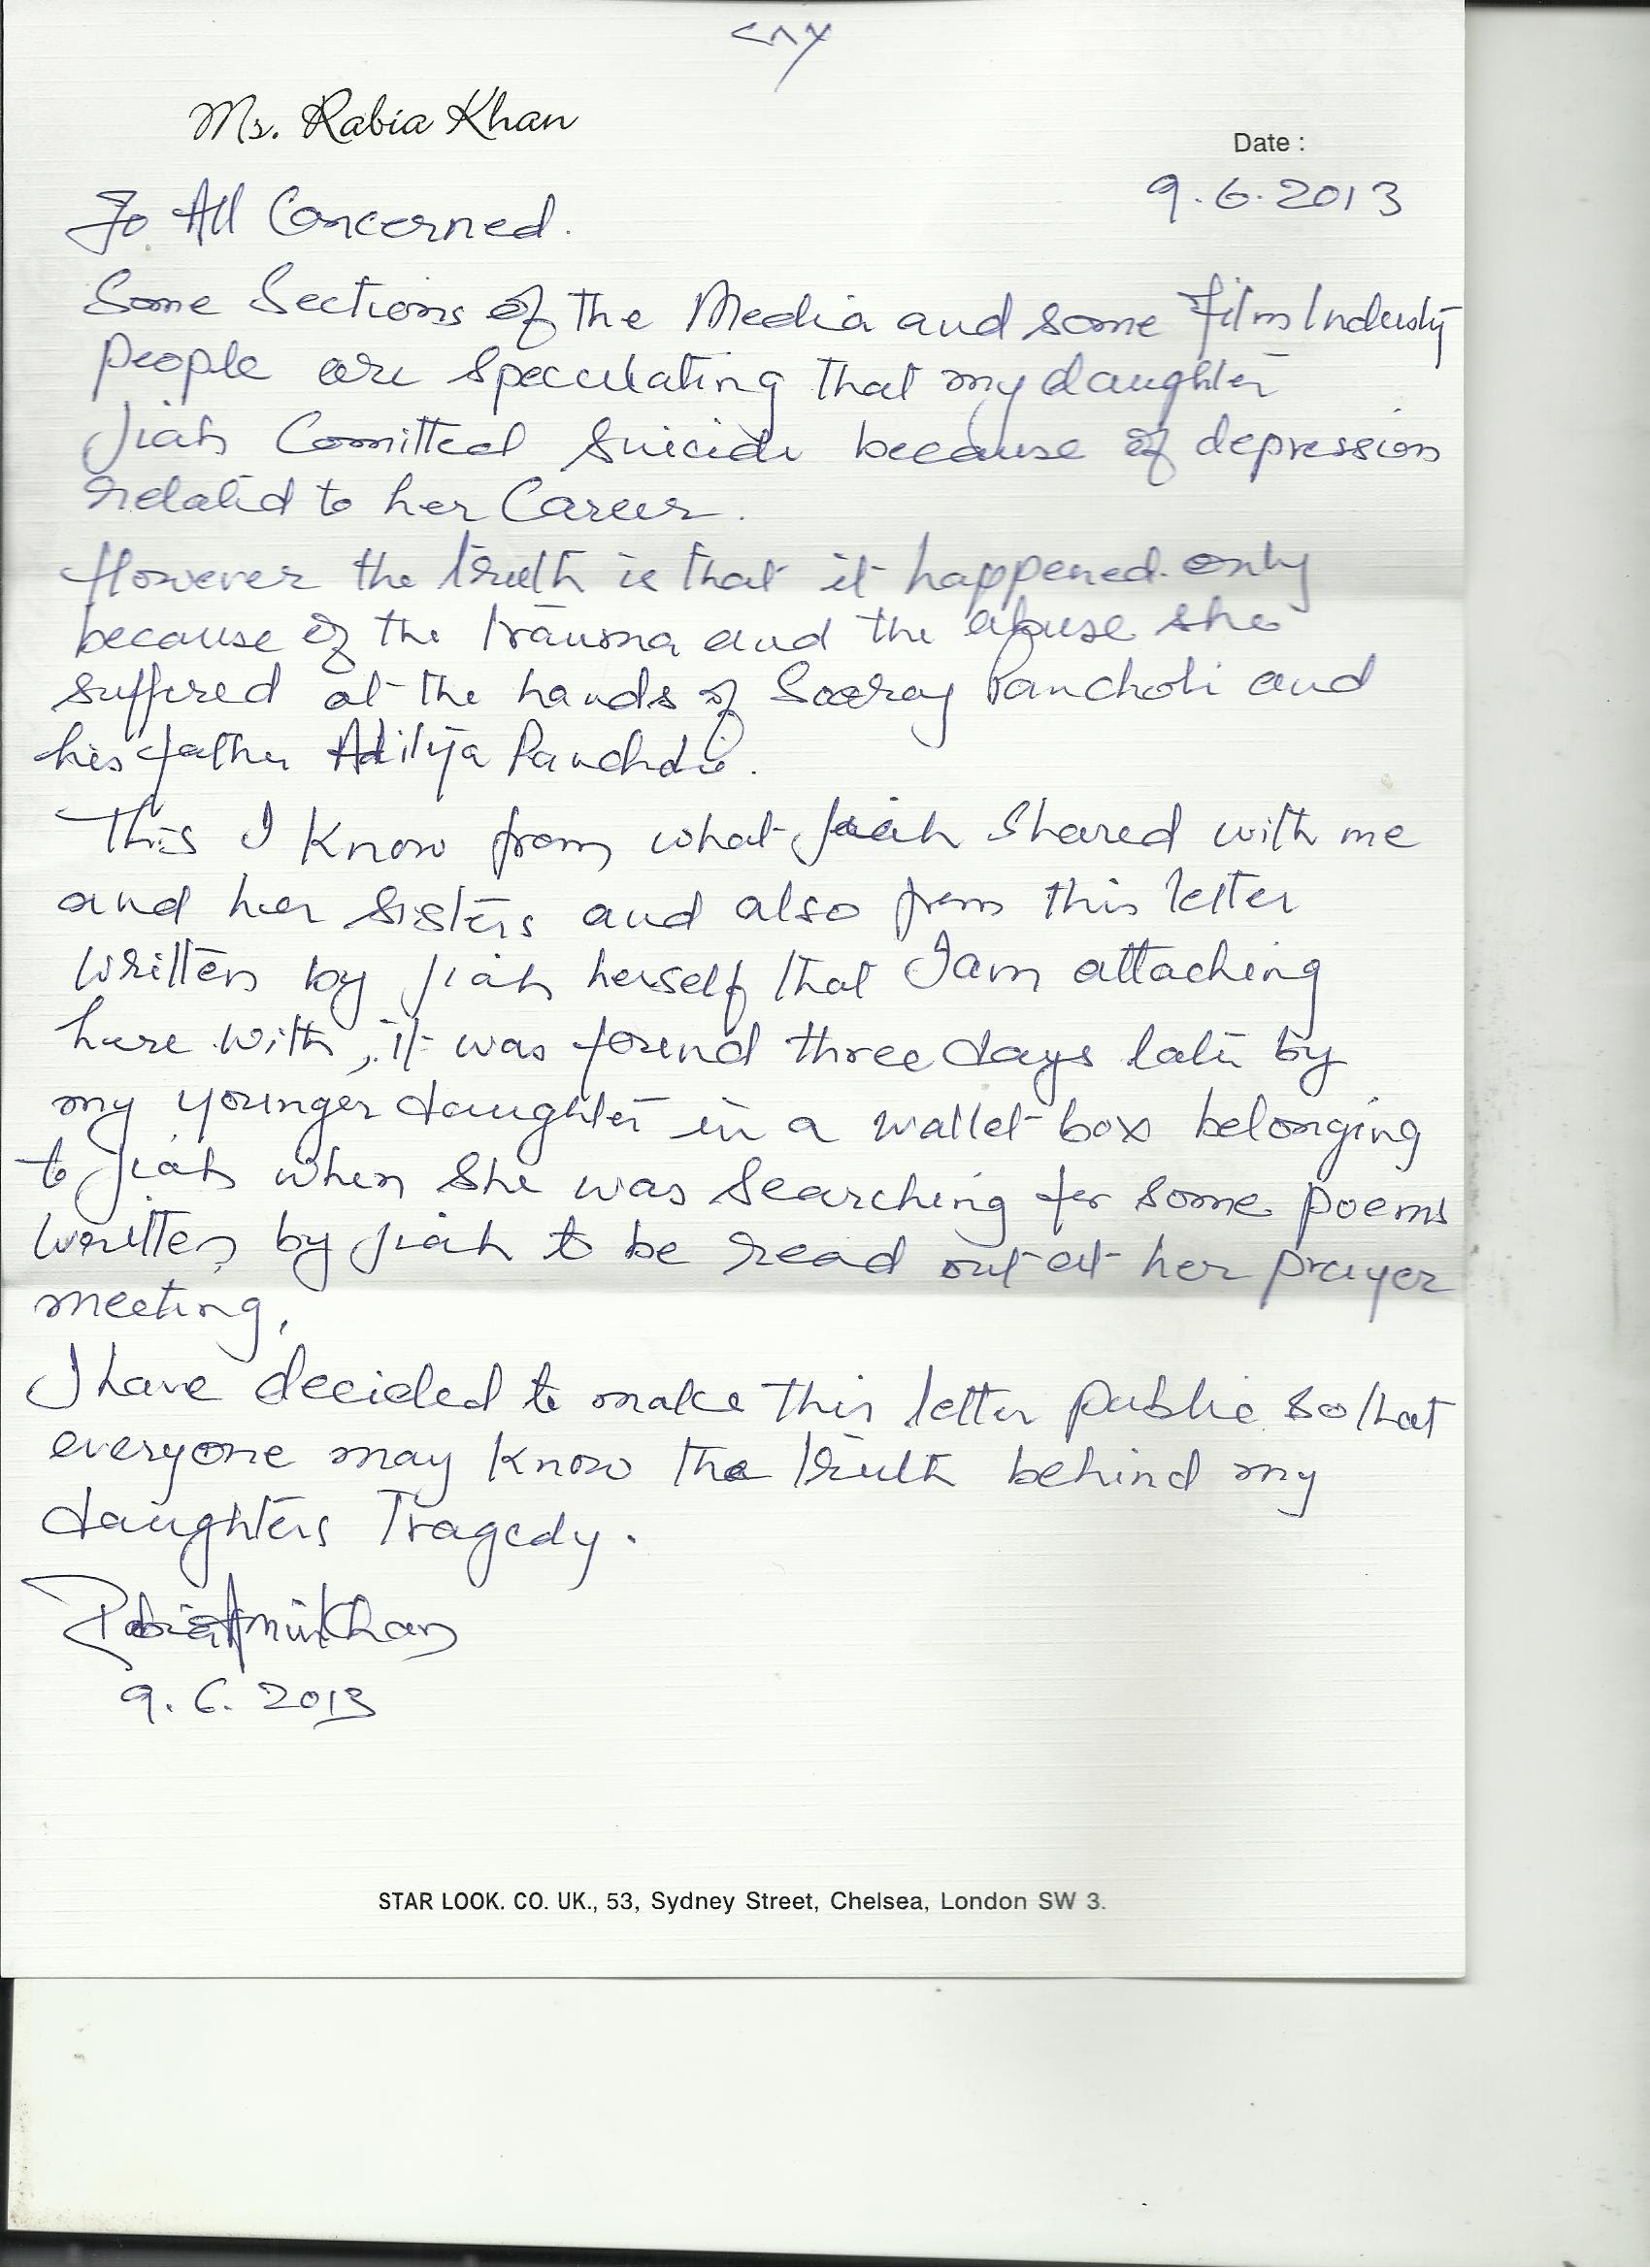 Ms. Rabia Khan
Date :
9.6.2013
To All Concerned.
Some Sections of the Media and some Film Industry
people are speculating that my daughter
Jiah Comitted Suicide because of depression
related to her Career.
However the truth is that it happened only
because of the trauma and the abuse she
suffered at the hands of Sooraj Pancholi and
his father Aditya Pancholi.
This I know from what Jiah Shared with me
and her Sisters and also from this letter
written by Jiah herself that I am attaching
here with, it was found three days late by
my younger daughter in a wallet box belonging
to Jiah when She was Searching for some poems
written by Jiah to be read out at her prayer
meeting,
I have decided to make this letter public so that
everyone may know the truth behind my
daughters Tragedy.
Rabia Amin Khan
9.6.2013
STAR LOOK. CO. UK., 53, Sydney Street, Chelsea, London SW 3.